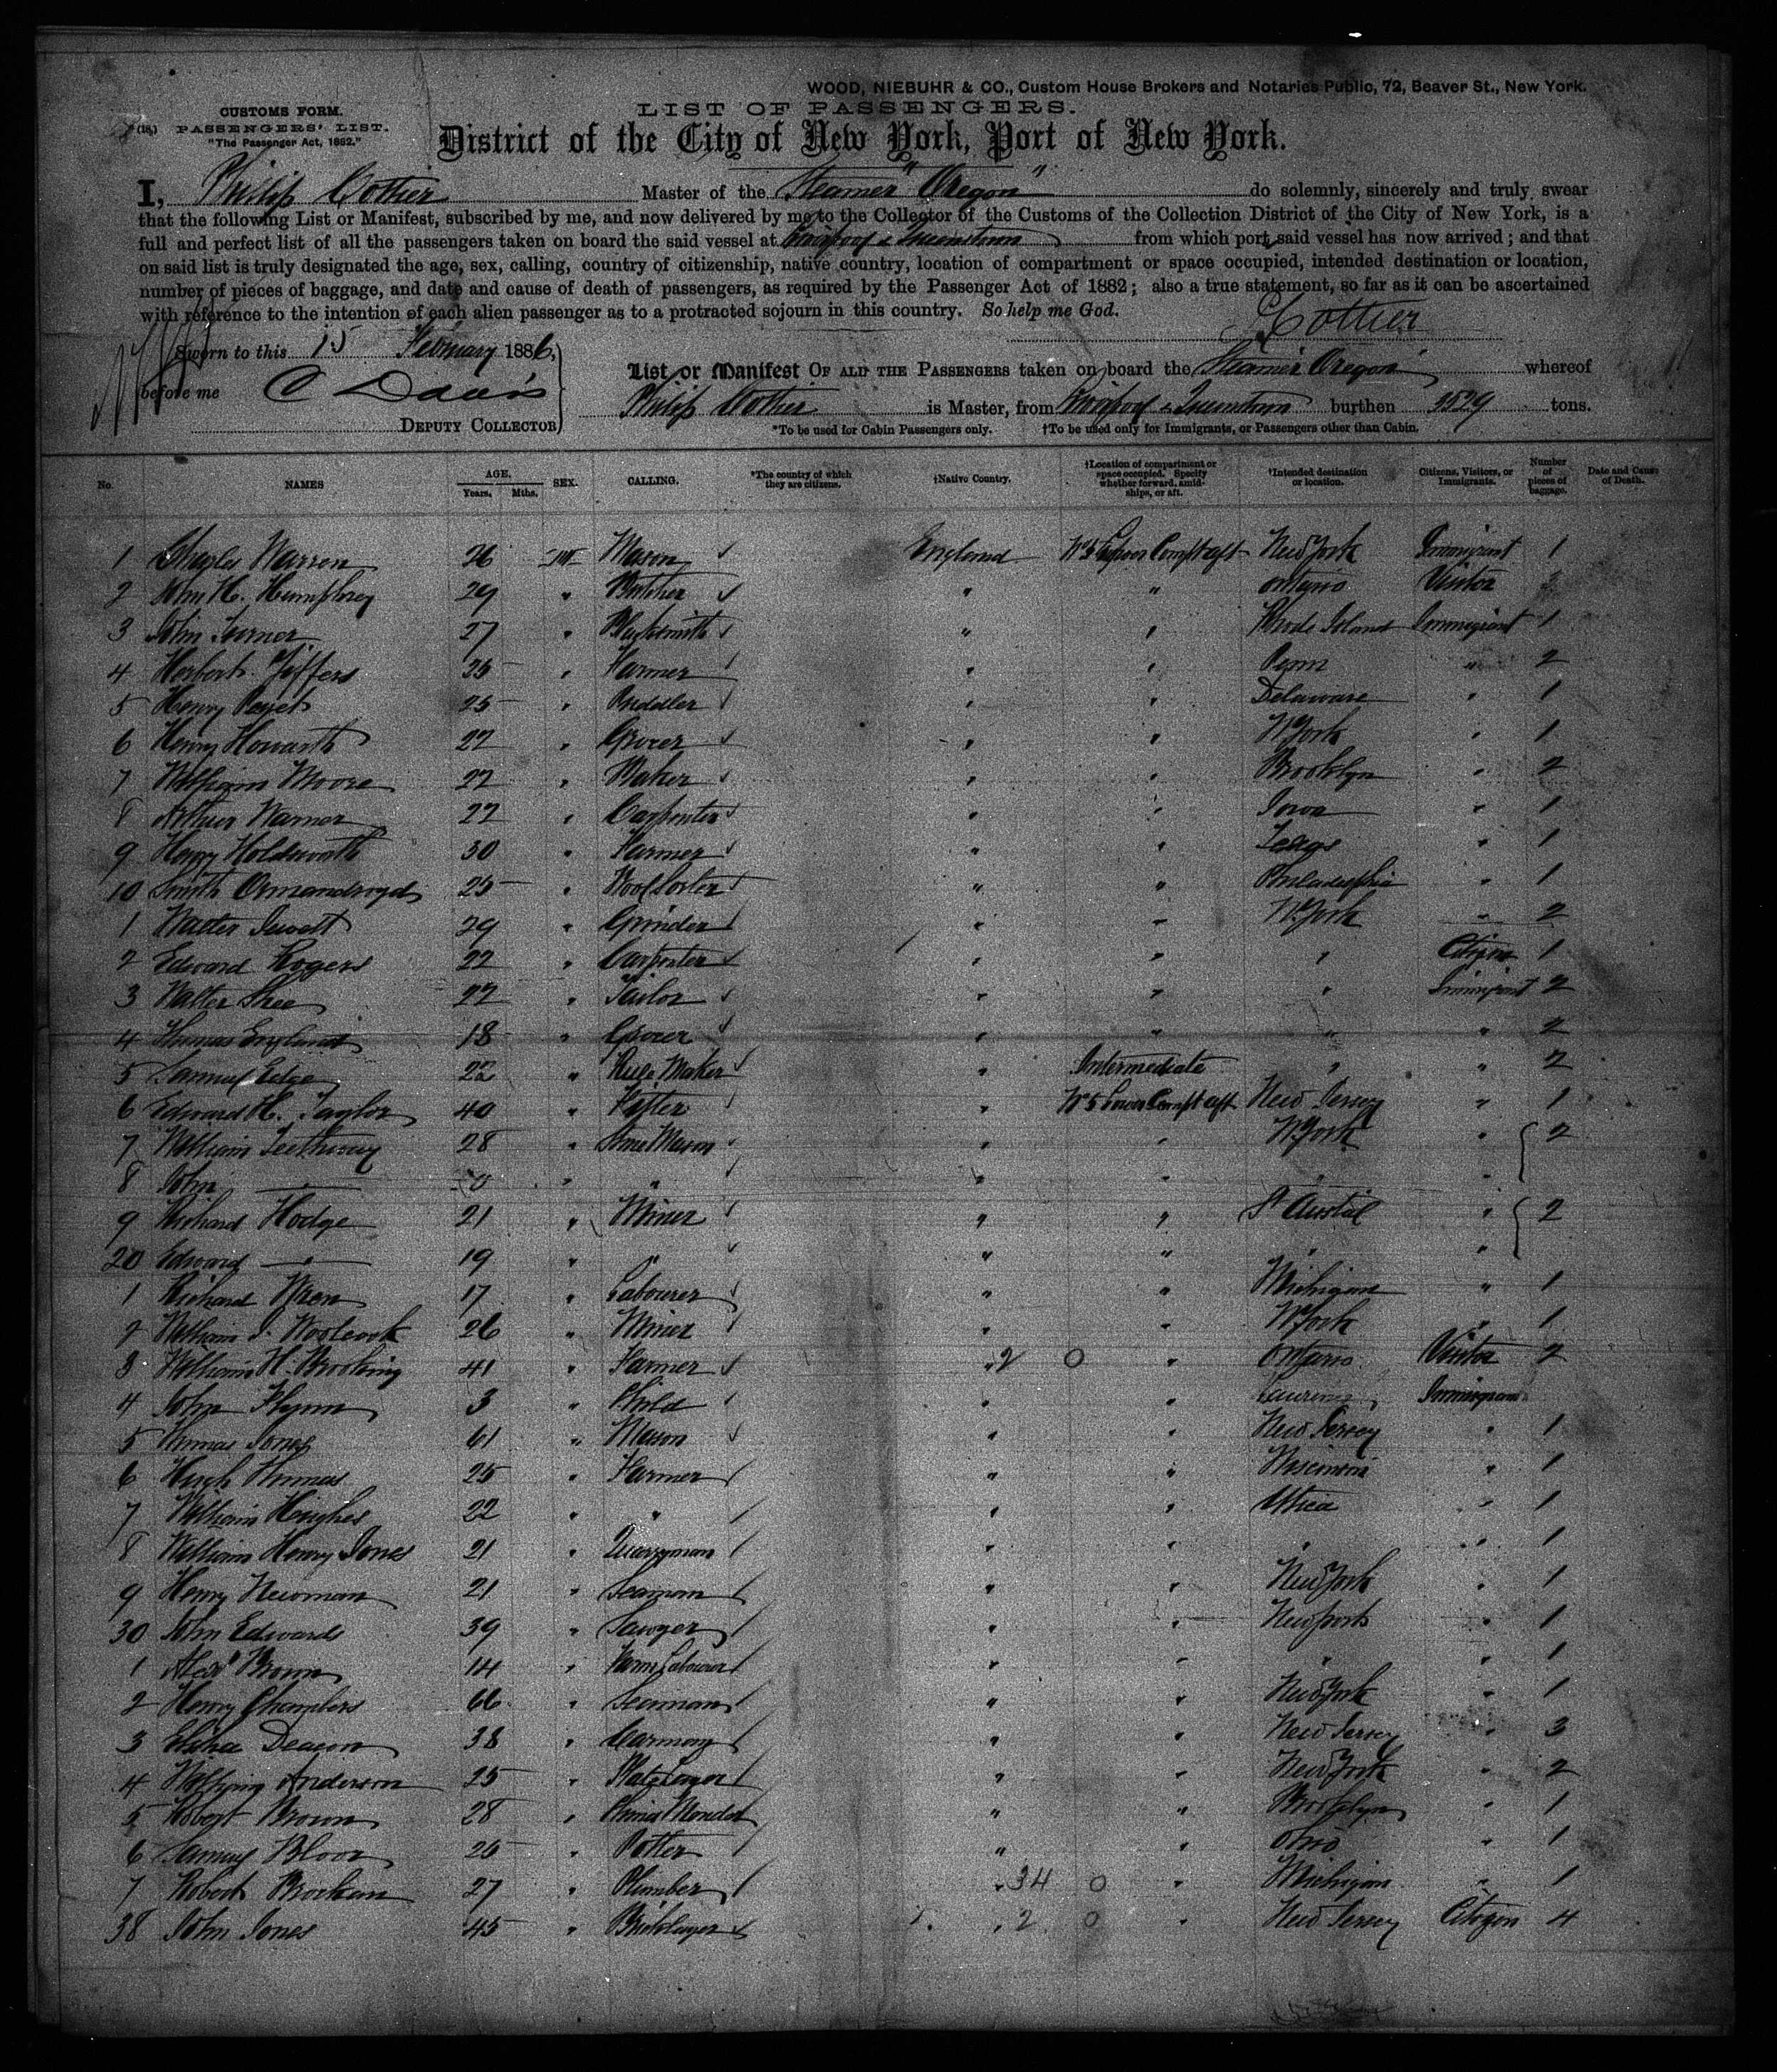 WOOD, NIEBUHR & CO., Custom House Brokers and Notaries Public, 72, Beaver St., New York.
CUSTOMS FORM.
LIST OF PASSENGERS.
PASSENGERS' LIST.
"The Passenger Act, 1882."
District of the City of New York, Port of New York.
I, Philip Cottier Master of the Steamer "Oregon" do solemnly, sincerely and truly swear
that the following List or Manifest, subscribed by me, and now delivered by me to the Collector of the Customs of the Collection District of the City of New York, is a
full and perfect list of all the passengers taken on board the said vessel at Liverpool & Queenstown from which port said vessel has now arrived; and that
on said list is truly designated the age, sex, calling, country of citizenship, native country, location of compartment or space occupied, intended destination or location,
number of pieces of baggage, and date and cause of death of passengers, as required by the Passenger Act of 1882; also a true statement, so far as it can be ascertained
with reference to the intention of each alien passenger as to a protracted sojourn in this country. So help me God.
Cottier
Sworn to this 15 February 1886,
List or Manifest OF ALL THE PASSENGERS taken on board the Steamer Oregon whereof
before me C Davis
Philip Cottier is Master, from Liverpool & Queenstown burthen 3529 tons.
DEPUTY COLLECTOR
*To be used for Cabin Passengers only. †To be used only for Immigrants, or Passengers other than Cabin.
No. NAMES AGE. Years. Mths. SEX. CALLING. *The country of which they are citizens. †Native Country. †Location of compartment or space occupied. Specify whether forward, amidships, or aft. †Intended destination or location. Citizens, Visitors, or Immigrants. Number of pieces of baggage. Date and Cause of Death.
1 Charles Warren 26 M Mason England No 5 Compt aft New York Immigrant 1
2 John H. Humphrey 29 " Butcher " " Ontario Visitor 3
3 John Turner 27 " Blacksmith " " Rhode Island Immigrant 1
4 Herbert Jeffers 25 " Farmer " " Penn " 2
5 Henry Paget 25 " Puddler " " Delaware " 1
6 Henry Howarth 22 " Grocer " " N York " 1
7 William Moore 22 " Baker " " Brooklyn " 2
8 Arthur Warner 22 " Carpenter " " Iowa " 1
9 Henry Holdsworth 30 " Farmer " " Texas " 1
10 Smith Ormandroyd 25 " Wool Sorter " " Philadelphia " 1
1 Walter Jewett 29 " Grinder " " N. York " 2
2 Edward Rogers 22 " Carpenter " " " Citizen 1
3 Walter Shee 22 " Tailor " " " Immigrant 2
4 Thomas England 18 " Grocer " " " " 2
5 Samuel Edge 22 " Rule Maker " Intermediate " " 2
6 Edward H. Taylor 40 " Fitter " No 5 Lower Compt aft New Jersey " 1
7 William 28 " Stone Mason " " N. York " 2
8 John — " " " " " "
9 Richard Hodge 21 " Miner " " St Austil " 2
20 Edward — 19 " " " " " "
1 Richard Wren 17 " Labourer " " Michigan " 1
2 William J. Woolcock 26 " Miner " " N York " 1
3 William H. Brooking 41 " Farmer " 2 0 " Ontario Visitor 2
4 John Flynn 3 " Child " " Immigrant
5 Thomas Jones 61 " Mason " " New Jersey " 1
6 Hugh Thomas 25 " Farmer " " Wisconsin " 1
7 William Hughes 22 " " " " Utica " 1
8 William Henry Jones 21 " Quarryman " " " " 1
9 Henry Newman 21 " Seaman " " New York " 1
30 John Edwards 39 " Sawyer " " Newport " 1
1 Alexr Brown 14 " Farm Labourer " " " " 1
2 Henry Chambers 66 " Seaman " " New York " 1
3 Elihu Deacon 38 " Carman " " New Jersey " 3
4 William Anderson 25 " Plate Layer " " New York " 2
5 Robert Brown 28 " China " " Brooklyn " 1
6 Samuel Bloor 26 " Potter " " Ohio " 1
7 Robert 27 " Plumber " 34 0 " Michigan " 1
38 John Jones 45 " Bricklayer " 2 0 " New Jersey Citizen 4